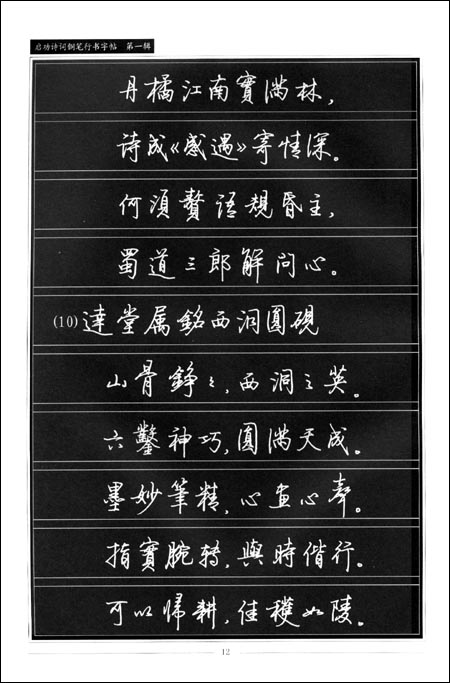 启功诗词钢笔行书字帖 第一辑
丹橘江南寶满林，
诗成《感遇》寄情深。
何须贅语規昏主，
蜀道三郎解问心。
(10)達堂属銘西洞圓硯
山骨錚々，西洞之英。
六鑿神巧，圓满天成。
墨妙筆精，心画心聲。
指實腕转，與時偕行。
可以帰耕，佳穫如陵。
12